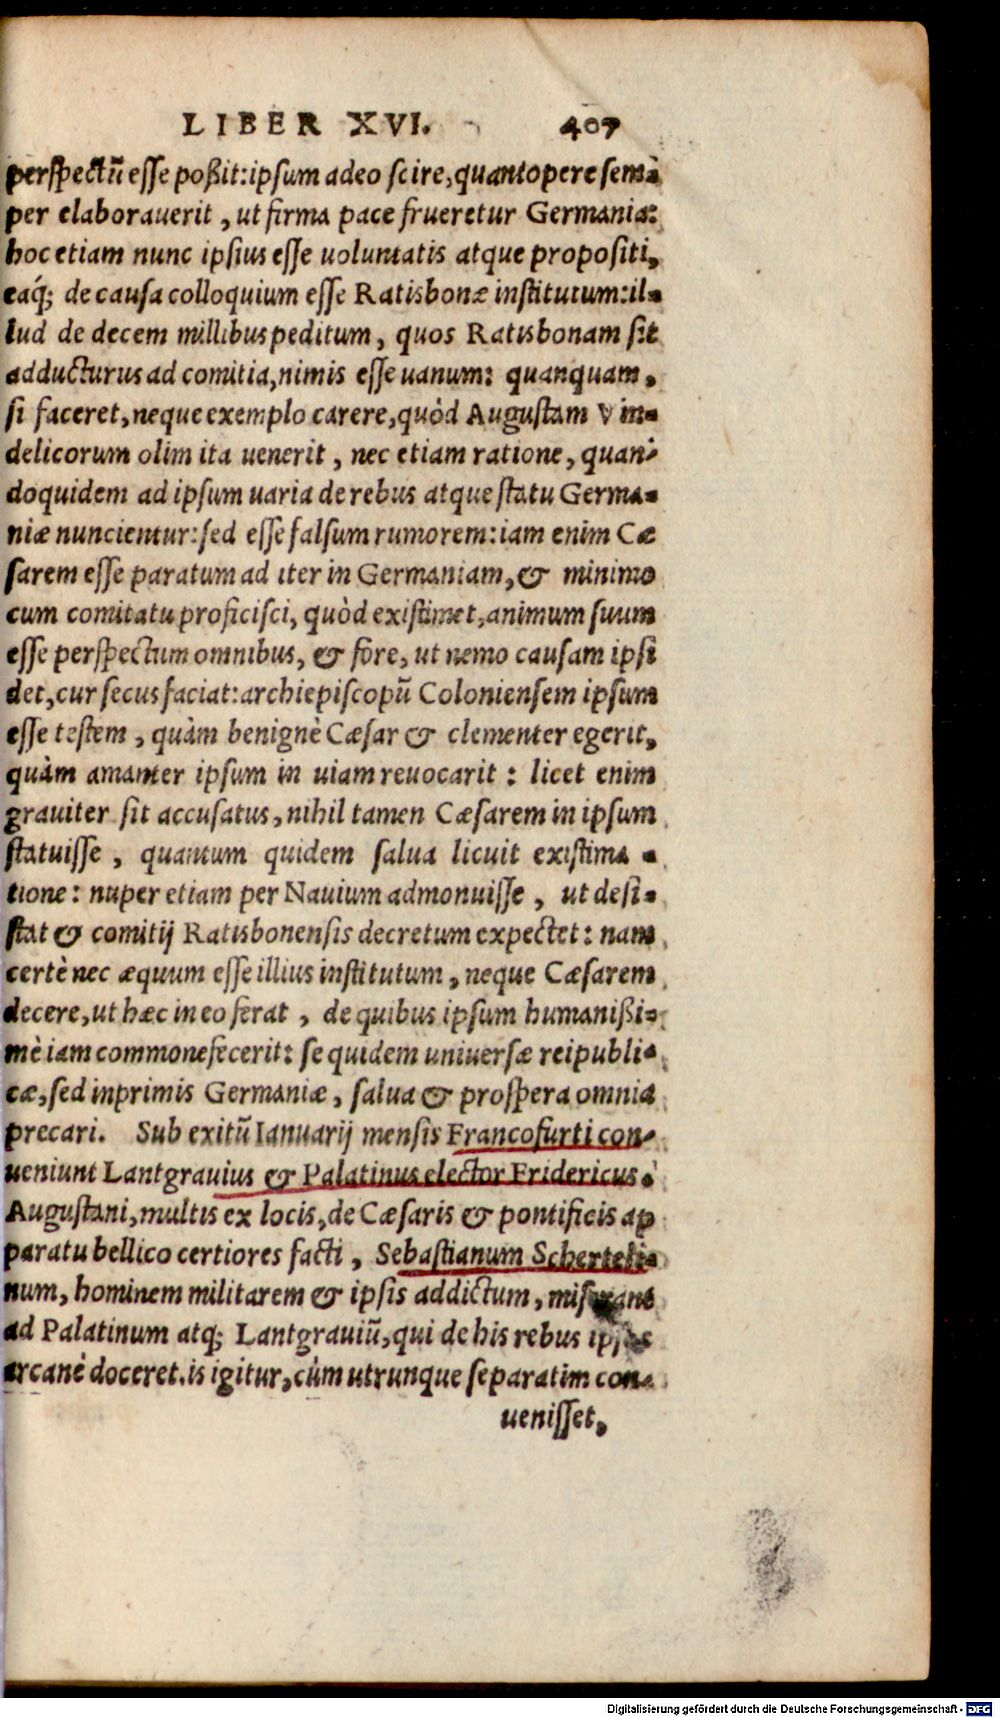 LIBER XVI. 407
perspectū esse poßit: ipsum adeo scire, quantopere sem-
per elaborauerit, ut firma pace frueretur Germania:
hoc etiam nunc ipsius esse uoluntatis atque propositi,
eaq́; de causa colloquium esse Ratisbonæ institutum: il-
lud de decem millibus peditum, quos Ratisbonam sit
adducturus ad comitia, nimis esse uanum: quanquam,
si faceret, neque exemplo carere, quòd Augustam Vin-
delicorum olim ita uenerit, nec etiam ratione, quan-
doquidem ad ipsum uaria de rebus atque statu Germa-
niæ nuncientur: sed esse falsum rumorem: iam enim Cæ
sarem esse paratum ad iter in Germaniam, & minimo
cum comitatu proficisci, quòd existimet, animum suum
esse perspectum omnibus, & fore, ut nemo causam ipsi
det, cur secus faciat: archiepiscopū Coloniensem ipsum
esse testem, quàm benignè Cæsar & clementer egerit,
quàm amanter ipsum in uiam reuocarit: licet enim
grauiter sit accusatus, nihil tamen Cæsarem in ipsum
statuisse, quantum quidem salua licuit existima-
tione: nuper etiam per Nauium admonuisse, ut desi-
stat & comitij Ratisbonensis decretum expectet: nam
certè nec æquum esse illius institutum, neque Cæsarem
decere, ut hæc in eo ferat, de quibus ipsum humanißi-
mè iam commonefecerit: se quidem uniuersæ reipubli-
cæ, sed inprimis Germaniæ, salua & prospera omnia
precari. Sub exitū Ianuarij mensis Francofurti con-
ueniunt Lantgrauius & Palatinus elector Fridericus.
Augustani, multis ex locis, de Cæsaris & pontificis ap
paratu bellico certiores facti, Sebastianum Scherteli-
num, hominem militarem & ipsis addictum, miserant
ad Palatinum atq; Lantgrauiū, qui de his rebus ipsos
arcanè doceret. is igitur, cùm utrunque separatim con-
uenisset,
Digitalisierung gefördert durch die Deutsche Forschungsgemeinschaft - DFG